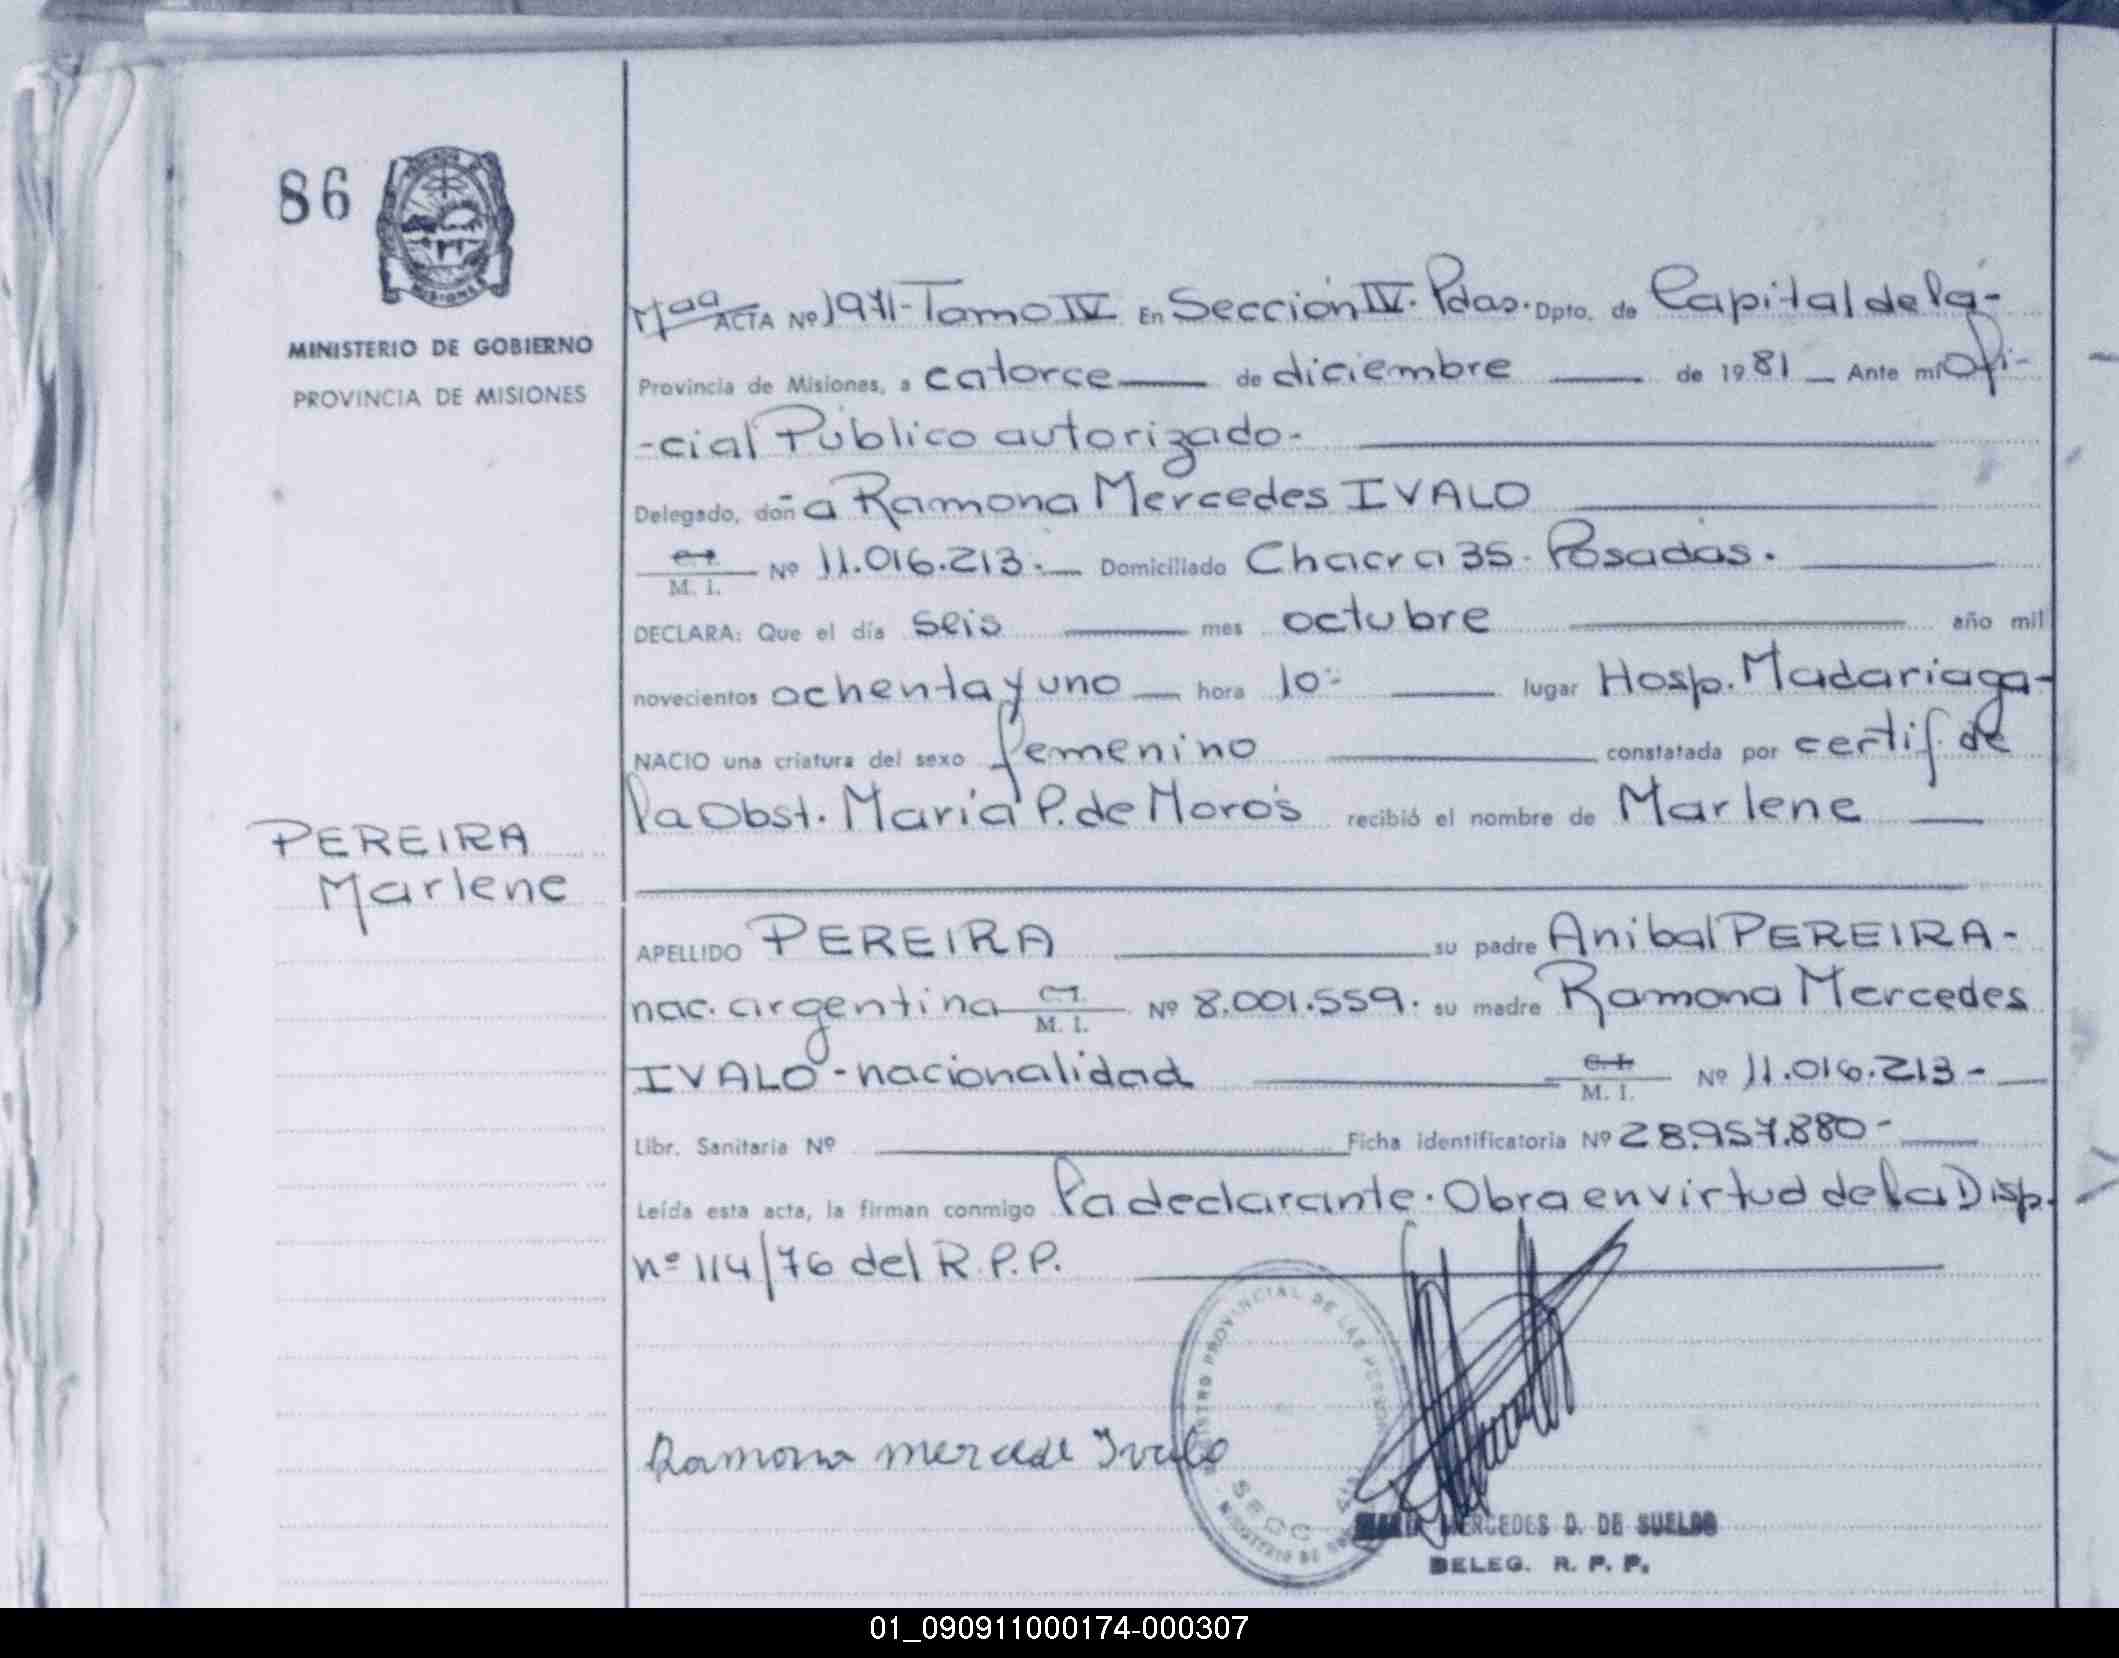 86
MISIONES
MINISTERIO DE GOBIERNO
PROVINCIA DE MISIONES
ACTA Nº 1971-Tomo IV En Sección IV. Pdas. Dpto. de Capital de la-
Provincia de Misiones, a catorce de diciembre de 1981 Ante mí Ofi-
-cial Público autorizado-
Delegado, doña Ramona Mercedes IVALO
M. I. Nº 11.016.213.- Domiciliado Chacra 35. Posadas.
DECLARA: Que el día seis mes octubre año mil
novecientos ochenta y uno hora 10- lugar Hosp. Madariaga-
NACIO una criatura del sexo femenino constatada por certif. de
la Obst. María P. de Moros recibió el nombre de Marlene
PEREIRA
Marlene
APELLIDO PEREIRA su padre Anibal PEREIRA-
nac. argentina M. I. Nº 8.001.559. su madre Ramona Mercedes
IVALO-nacionalidad M. I. Nº 11.016.213-
Libr. Sanitaria Nº Ficha identificatoria Nº 28.957.880-
Leída esta acta, la firman conmigo la declarante. Obra en virtud de la Disp.
nº 114/76 del R.P.P.
PROVINCIAL DE LAS
SECC
Ramona mercede Ivalo
MERCEDES D. DE SUELDO
DELEG. R. P. P.
01_090911000174-000307